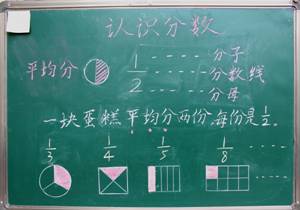 认识分数
平均分 1/2 ---- 分子
---- 分数线
---- 分母
一块蛋糕平均分两份,每份是1/2。
1/3 1/4 1/5 1/8 ----
----